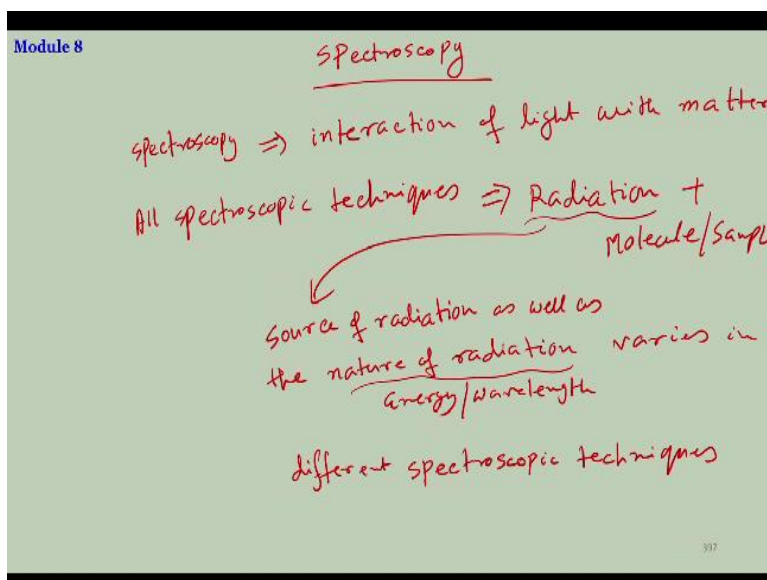 Module 8
Spectroscopy
spectroscopy ⇒ interaction of light with matter
All spectroscopic techniques ⇒ Radiation +
Molecule/Sampl
Source of radiation as well as
the nature of radiation varies in
Energy/wavelength
different spectroscopic techniques
397